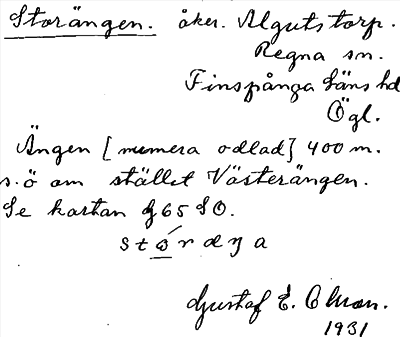 Storängen. åker. Algutstorp.
Regna sn.
Finspånga läns hd
Ögl.
Ängen [numera odlad] 400 m.
s.ö om stället Västerängen.
Se kartan g 65 SO.
stórdŋa
Gustaf E. Olson.
1931